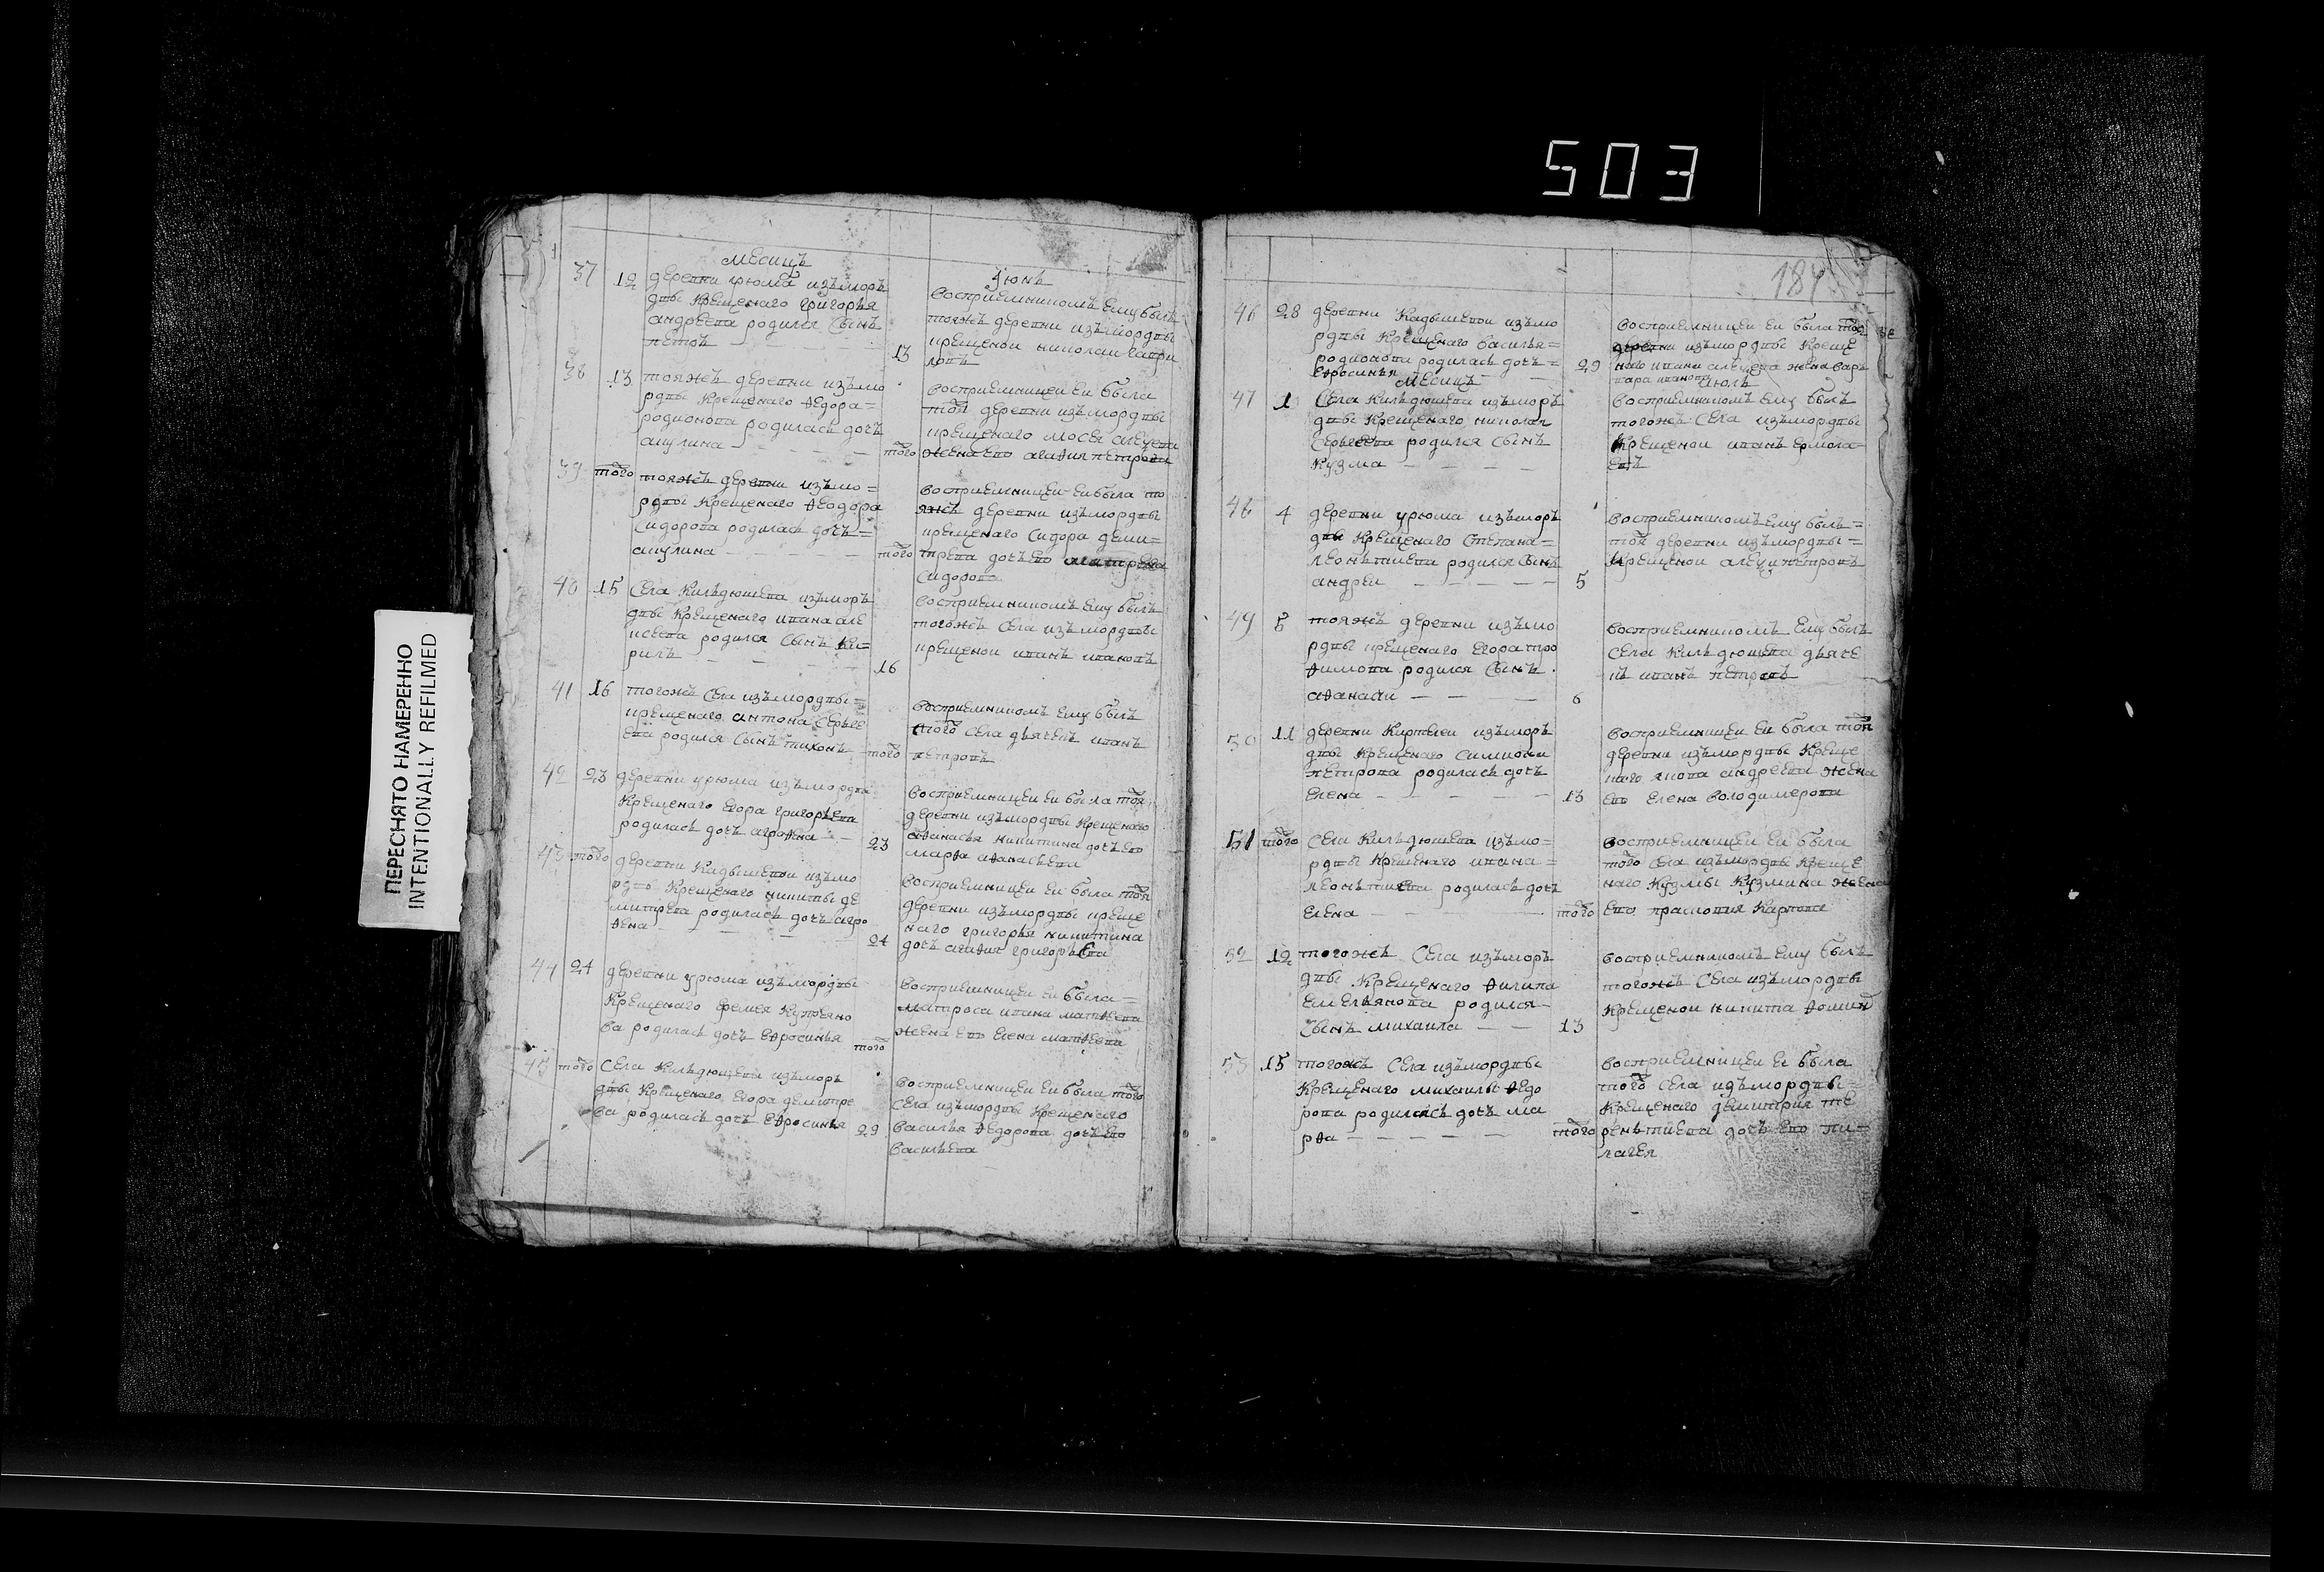 503
184
ПЕРЕСНЯТО НАМЕРЕННО
INTENTIONALLY REFILMED
месицъ
Июнь
37 12 деревни урюма изъ моръ
двы крещенаго григорья
андреева родился сынъ
петръ 13
восприемникомъ ему былъ
тояжъ деревни изъ мордвы
крещеной николаи гаври
ловъ
38 13 тояжъ деревни изъ мо
рдвы крещенаго ѳедора =
родионова родилась дочь
акулина того
восприемницеи еи была
тоя деревни изъ мордвы
крещенаго мосея алеѯева
жена ево агаѳия петрова
39 того тояжъ деревни изъ мо =
рдвы крещенаго ѳеодора
сидорова родилась дочь =
акулина того
восприемницеи еи была то
яжъ деревни изъ мордвы
крещенаго сидора дими =
трева дочь ево
сидорова
40 15 села кильдюшева изъ моръ
двы крещенаго ивана але
ксеева родился сынъ ки =
рилъ 16
восприемникомъ ему былъ
тогожъ села изъ мордвы
крещеной иванъ ивановъ
41 16 тогожъ села изъ мордвы =
крещенаго антона сергее
ева родился сынъ тихонъ того
восприемникомъ ему былъ
того села дьячекъ иванъ
петровъ
42 23 деревни урюма изъ мордвы
крещенаго егора григорьева
родилась дочь аграѳена 23
восприемницеи еи была тоя
деревни изъ мордвы крещенаго
аѳанасья никитина дочь ево
марѳа аѳанасьева
43 того деревни кадышевой изъ мо
рдвы крещенаго никиты де
митрева родилась дочь агра
ѳена 24
восприемницеи еи была тоя
деревни изъ мордвы креще
наго григорья никитина
дочь агаѳия григорьева
44 24 деревни урюма изъ мордвы
крещенаго еремея купреяно
ва родилась дочь еѳросинья того
восприемницеи еи была =
матроса ивана матѳева
жена ево елена матѳева
45 того села кильдюшева изъ моръ
двы крещенаго егора демитре
ва родилась дочь еѳросинья 29
восприемницеи еи была того
села изъ мордвы крещенаго
василья ѳедорова дочь ево
васильева
46 28 деревни кадышевой изъ мо
рдвы крещенаго василья =
родионова родилась дочь =
еѳросинья 29
восприемницеи еи была тоя же
деревни изъ мордвы креще
наго ивана алеѯева жена варъ
вара иванова
месицъ
июль
47 1 села кильдюшева изъ моръ
двы крещенаго николая
сергеева родился сынъ
кузма
восприемникомъ ему былъ
тогожъ села изъ мордвы
крещеной иванъ ермола =
евъ
48 4 деревни урюма изъ моръ
двы крещенаго степана =
леонътиева родился сынъ
андреи 5
восприемникомъ ему былъ =
тоя деревни изъ мордвы =
крещеной алеѯи петровъ
49 5 тояжъ деревни изъ мо
рдвы крещенаго егора тро
ѳимова родился сынъ
аѳанасии 6
восприемникомъ ему былъ
села кильдюшева дьяче
къ иванъ петровъ
50 11 деревни киртели изъ моръ
двы крещенаго симиона
петрова родилась дочь
елена 13
восприемницеи еи была тоя
деревни изъ мордвы креще
наго якова андреева жена
ево елена володимерова
51 того села кильдюшева изъ мо =
рдвы крещенаго ивана =
леонътиева родилась дочь
елена того
восприемницеи еи была
того села изъ мордвы креще
наго кузмы кузмина жена
ево прасковия карпова
52 12 тогожъ села изъ моръ
двы крещенаго ѳилипа
емельянова родился
сынъ михаила 13
восприемникомъ ему былъ
тогожъ села изъ мордвы
крещеной никита ѳомин
53 15 тогожъ села изъ мордвы
крещенаго михаилы ѳедо
рова родилась дочь ма
рѳа того
восприемницеи еи была
того села изъ мордвы =
крещенаго димитрия те
ренътиева дочь ево пи =
лагея